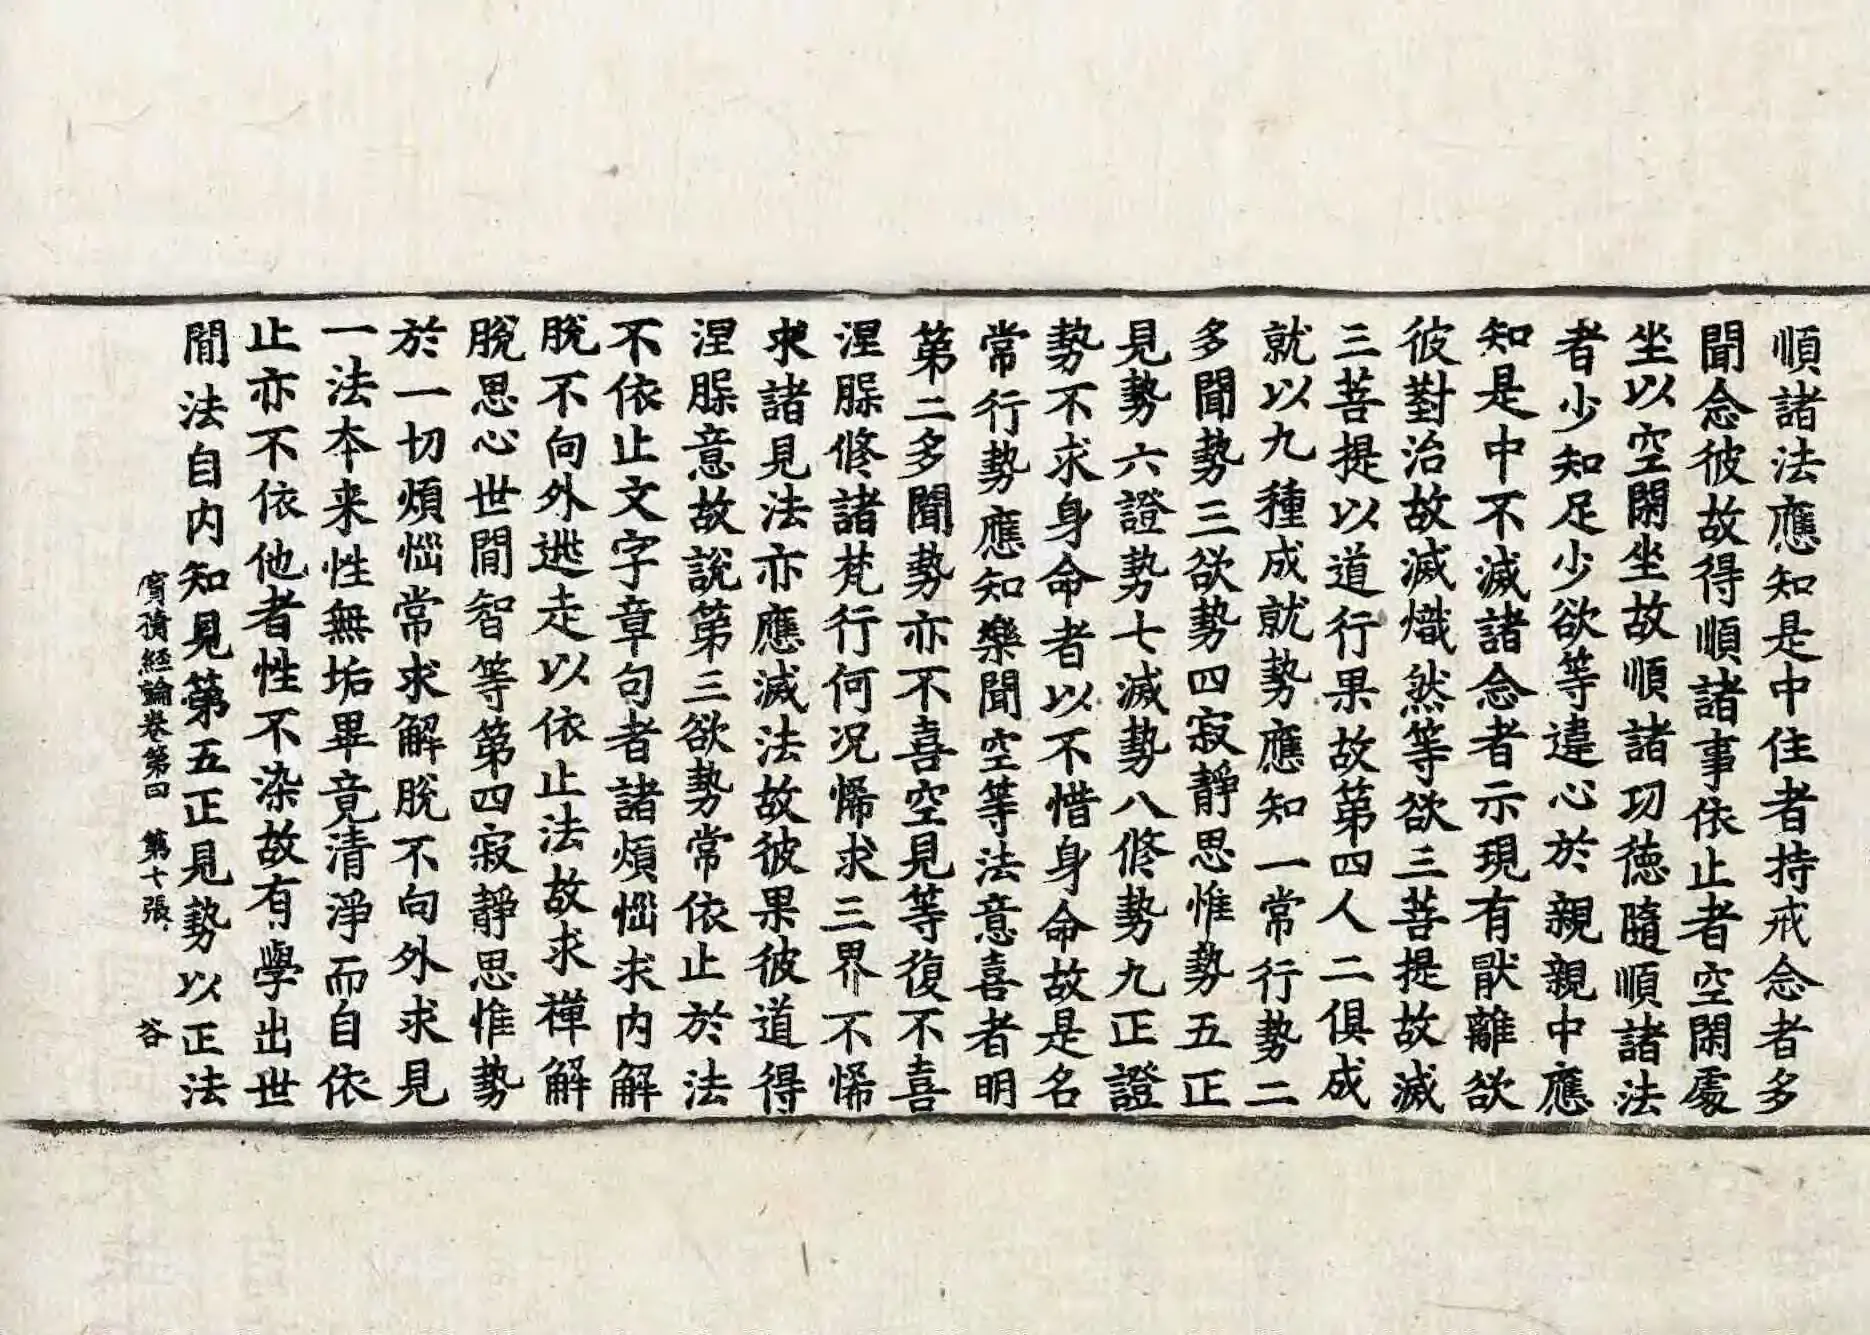 順諸法應知是中住者持戒念者多
聞念彼故得順諸事依止者空閑處
坐以空閑坐故順諸功德隨順諸法
者少知足少欲等違心於親親中應
知是中不滅諸念者示現有猒離欲
彼對治故滅熾然等欲三菩提故滅
三菩提以道行果故第四人二俱成
就以九種成就就勢應知一常行勢二
多聞勢三欲勢四寂靜思惟勢五正
見勢六證勢七滅勢八修勢九正證
勢不求身命者以不惜身命故是名
常行勢應知樂聞空等法意喜者明
第二多聞勢亦不喜空見等復不喜
涅槃修諸梵行何況悕求三界不悕
求諸見法亦應滅法故彼果彼道得
涅槃意故說第三欲勢常依止於法
不依止文字章句者諸煩惱求內解
脫不向外逃走以依止法故求禪解
脫思心世間智等第四寂靜思惟勢
於一切煩惱常求解脫不向外求見
一法本来性無垢畢竟清淨而自依
止亦不依他者性不染故有學出世
間法自內知見第五正見勢以正法
寶積經論卷第四 第十張 谷